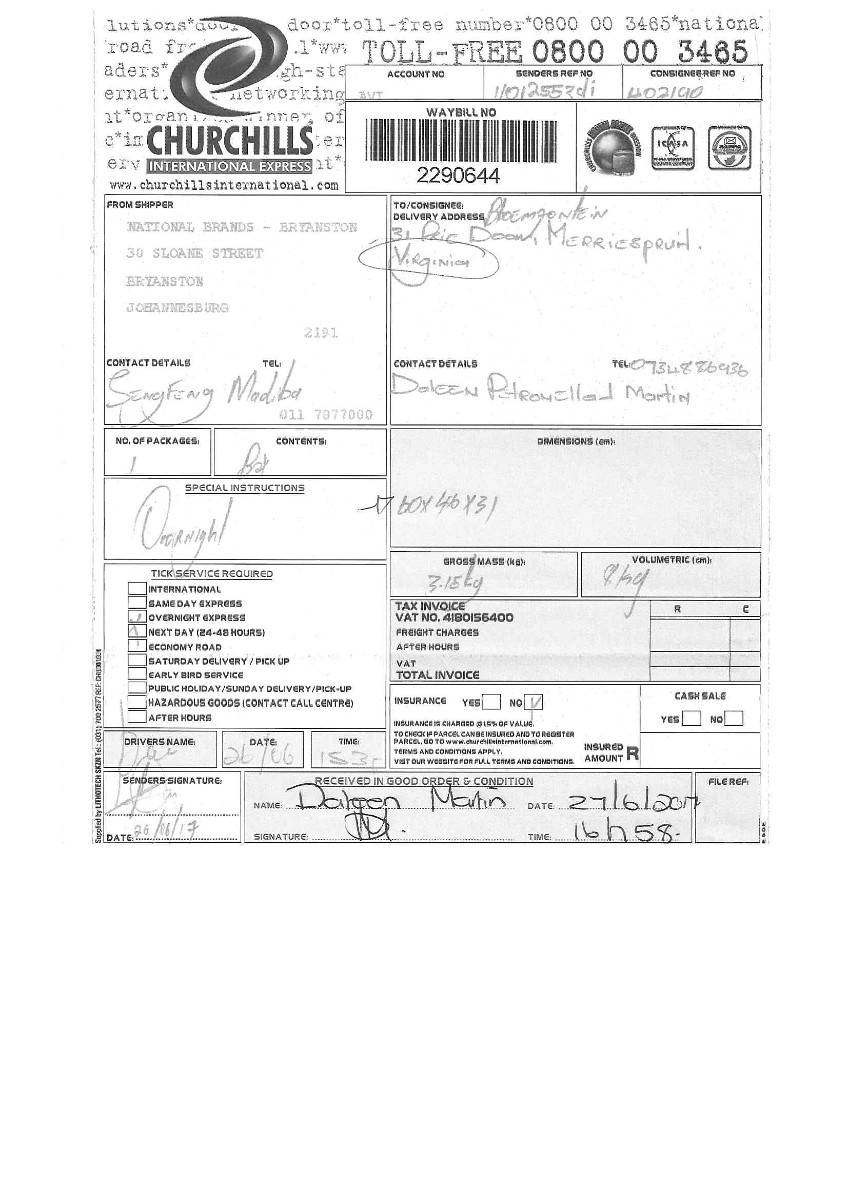 lutions*doo door*toll-free number*0800 00 3465*nationa
road fr .l*www TOLL-FREE 0800 00 3465
aders* gh-sta
ernati networking
nt*organi inner of
c*in ter
erv nt*
CHURCHILLS
INTERNATIONAL EXPRESS
www.churchillsinternational.com
ACCOUNT NO
SENDERS REF NO
CONSIGNEE REF NO
402190
WAYBILL NO
2290644
ICASA
FROM SHIPPER
NATIONAL BRANDS - BRYANSTON
30 SLOANE STREET
BRYANSTON
JOHANNESBURG
2191
CONTACT DETAILS TEL:
Madiba
011 7077000
TO/CONSIGNEE:
DELIVERY ADDRESS Bloemfontein
31 Doorn, Merriespruit.
Virginia
CONTACT DETAILS TEL: 0734886936
Daleen Petronella J Martin
NO. OF PACKAGES: CONTENTS:
1 Box
SPECIAL INSTRUCTIONS
Overnight
DIMENSIONS (cm):
60x46x31
GROSS MASS (kg): VOLUMETRIC (cm):
3.15kg 8kg
TICK SERVICE REQUIRED
INTERNATIONAL
SAME DAY EXPRESS
OVERNIGHT EXPRESS
NEXT DAY (24-48 HOURS)
ECONOMY ROAD
SATURDAY DELIVERY / PICK UP
EARLY BIRD SERVICE
PUBLIC HOLIDAY/SUNDAY DELIVERY/PICK-UP
HAZARDOUS GOODS (CONTACT CALL CENTRE)
AFTER HOURS
TAX INVOICE R C
VAT NO. 4180156400
FREIGHT CHARGES
AFTER HOURS
VAT
TOTAL INVOICE
INSURANCE YES NO
INSURANCE IS CHARGED @ 1.5% OF VALUE.
TO CHECK IF PARCEL CAN BE INSURED AND TO REGISTER
PARCEL, GO TO www.churchillsinternational.com.
TERMS AND CONDITIONS APPLY.
VISIT OUR WEBSITE FOR FULL TERMS AND CONDITIONS.
CASH SALE
YES NO
INSURED
AMOUNT R
DRIVERS NAME: DATE: TIME:
26/06
SENDERS SIGNATURE:
DATE: 26/06/17
RECEIVED IN GOOD ORDER & CONDITION
NAME: Daleen Martin DATE: 27/6/2017
SIGNATURE: TIME: 16h58-
FILE REF: